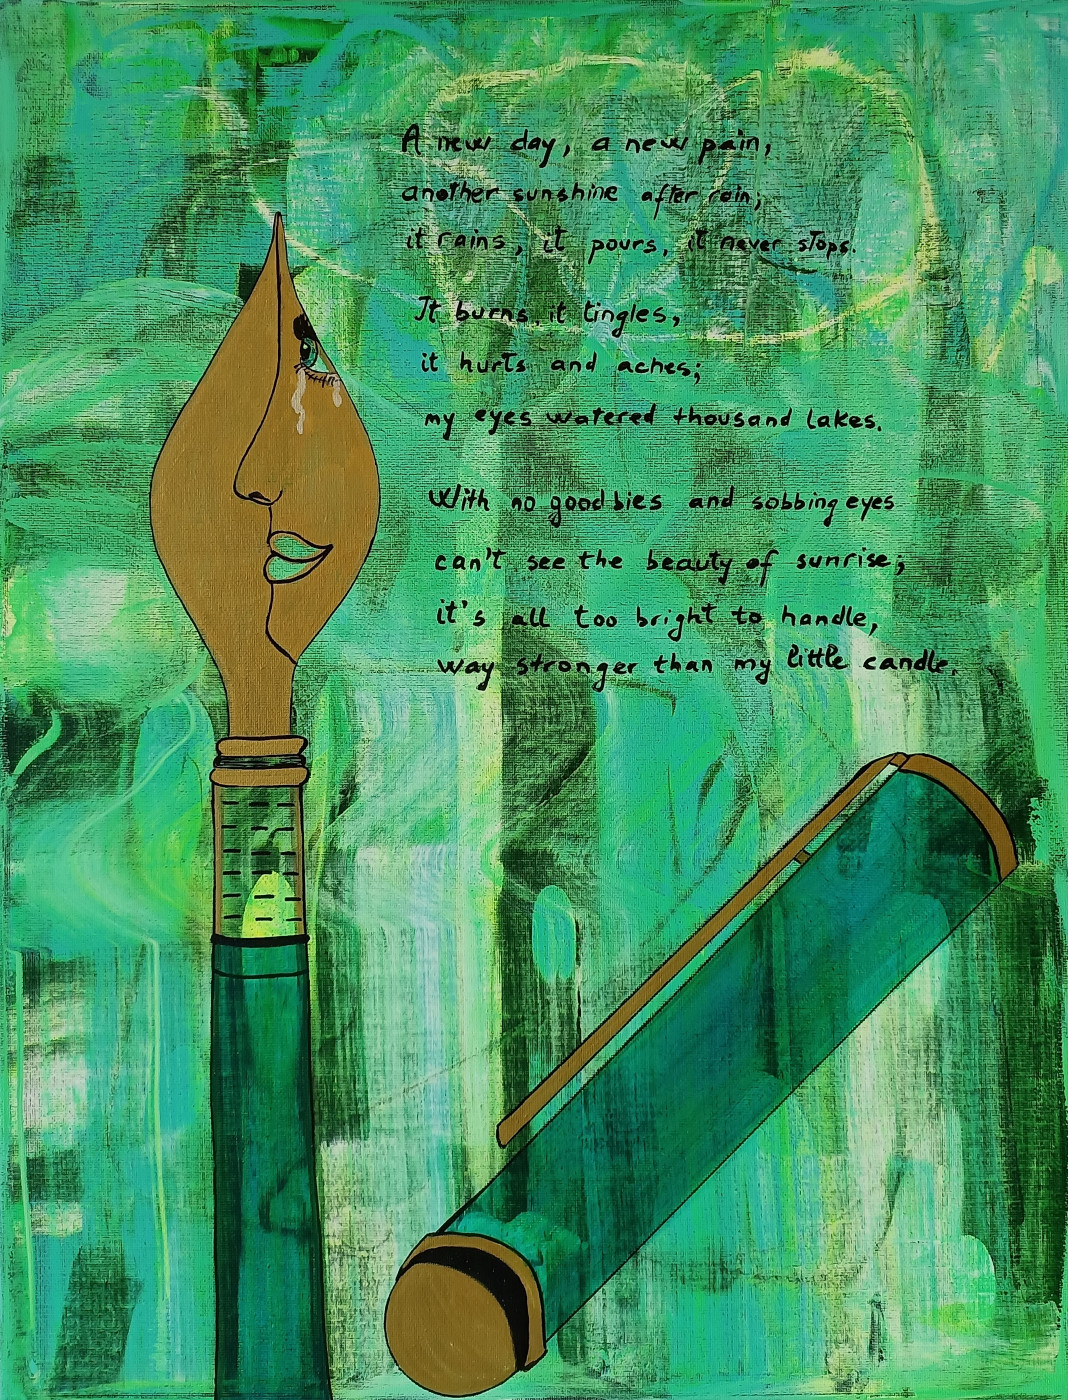 A new day, a new pain,
another sunshine after rain;
it rains, it pours, it never stops.
It burns, it tingles,
it hurts and aches;
my eyes watered thousand lakes.
With no goodbies and sobbing eyes
can't see the beauty of sunrise;
it's all too bright to handle,
way stronger than my little candle.